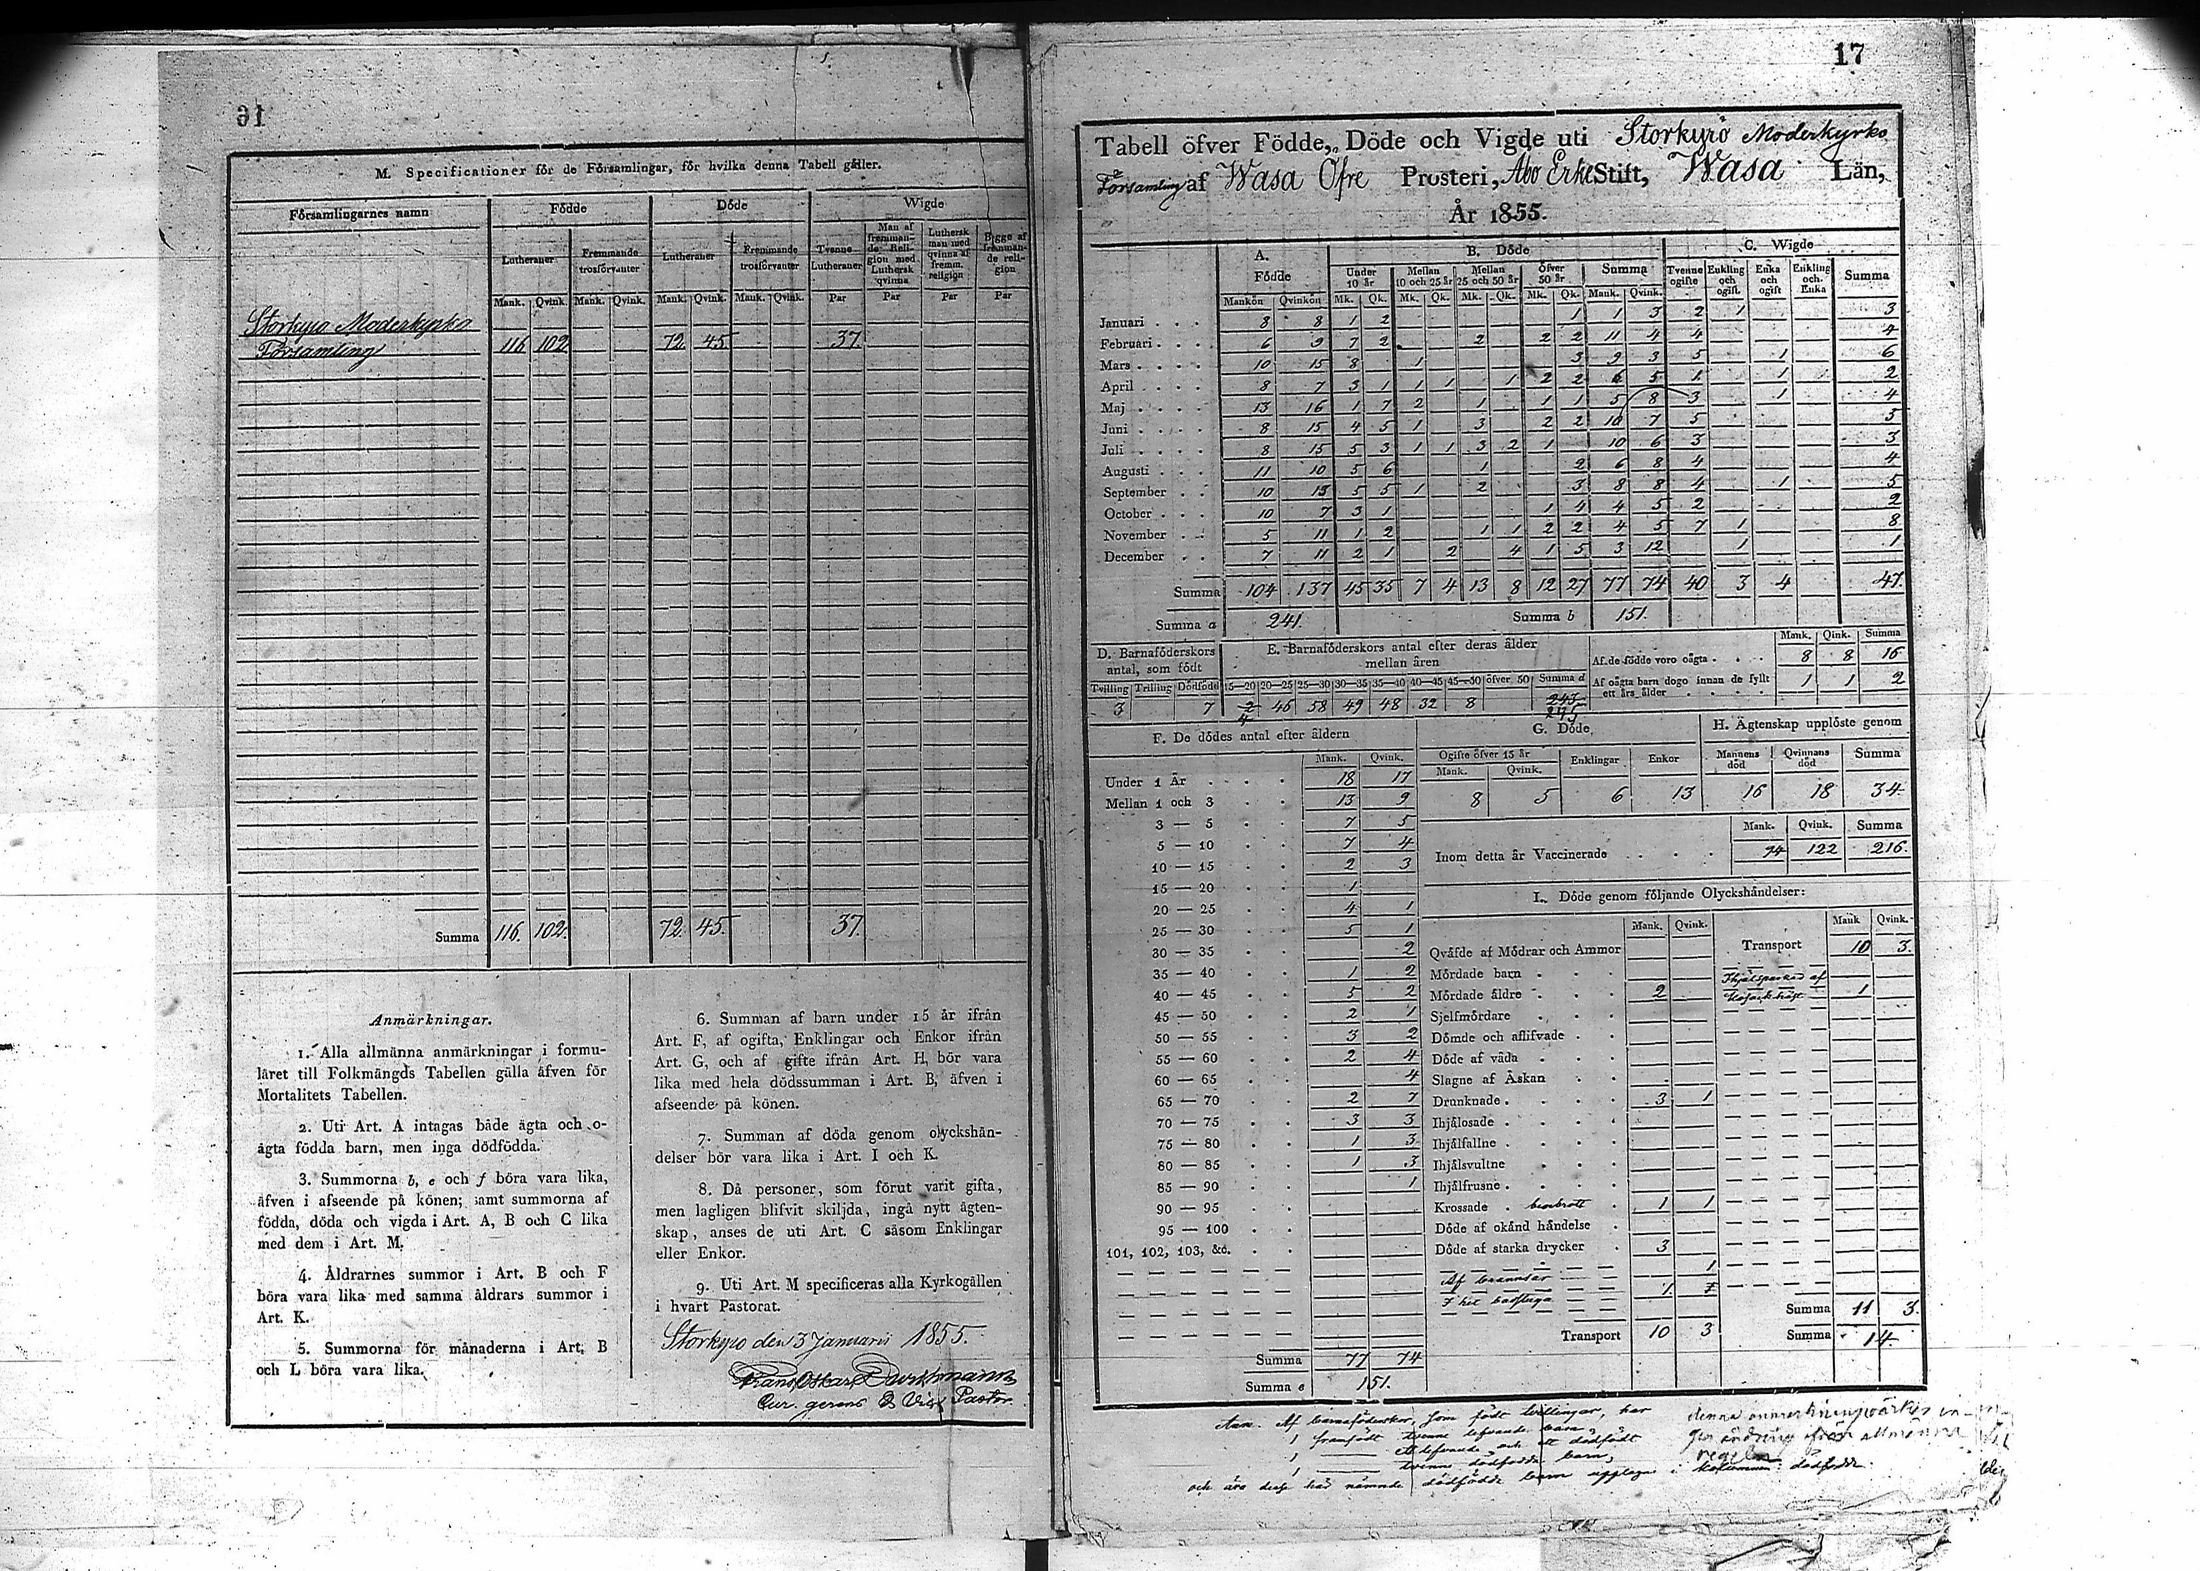 16
M. Specificationer för de Församlingar, för hvilka denna Tabell gäller.
Församlingarnes namn Födde Döde Wigde
Lutheraner Fremmande trosförvanter Lutheraner Fremmande trosförvanter Tvenne Lutheraner Man af fremmande Religion med Luthersk qvinna Luthersk man med qvinna af fremm. religion Bägge af fremmande religion
Mank. Qvink. Mank. Qvink. Mank. Qvink. Mank. Qvink. Par Par Par Par
Storkyro Moderkyrko
Församling 116 102 72 45 37.
Summa 116. 102. 72. 45. 37.
Anmärkningar.
1. Alla allmänna anmärkningar i formu-
läret till Folkmängds Tabellen gälla äfven för
Mortalitets Tabellen.
2. Uti Art. A intagas både ägta och o-
ägta födda barn, men inga dödfödda.
3. Summorna b, e och f böra vara lika,
äfven i afseende på könen; samt summorna af
födda, döda och vigda i Art. A, B och C lika
med dem i Art. M.
4. Åldrarnes summor i Art. B och F
böra vara lika med samma åldrars summor i
Art. K.
5. Summorna för månaderna i Art. B
och L böra vara lika.
6. Summan af barn under 15 år ifrån
Art. F, af ogifta, Enklingar och Enkor ifrån
Art. G, och af gifte ifrån Art. H, bör vara
lika med hela dödssumman i Art. B, äfven i
afseende på könen.
7. Summan af döda genom olyckshän-
delser bör vara lika i Art. I och K.
8. Då personer, som förut varit gifta,
men lagligen blifvit skiljda, ingå nytt ägten-
skap, anses de uti Art. C såsom Enklingar
eller Enkor.
9. Uti Art. M specificeras alla Kyrkogällen
i hvart Pastorat.
Storkyro den 3 Januarii 1855.
Frans Oskar Durchman
Cur. gerens & Vice Pastor.
17
Tabell öfver Födde, Döde och Vigde uti Storkyrö Moderkyrko
Församling af Wasa Öfre Prosteri, Åbo Erke Stift, Wasa Län,
År 1855.
A. Födde B. Döde C. Wigde
Under 10 år Mellan 10 och 25 år Mellan 25 och 50 år Öfver 50 år Summa Tvenne ogifte Enkling och ogift. Enka och ogift Enkling och Enka Summa
Mankön Qvinkön Mk. Qk. Mk. Qk. Mk. Qk. Mk. Qk. Mank. Qvink.
Januari 8 8 1 2 1 1 3 2 1 3
Februari 6 9 7 2 2 2 2 11 4 4 4
Mars 10 15 8 1 3 9 3 5 1 6
April 8 7 3 1 1 1 1 2 2 6 5 1 1 2
Maj 13 16 1 7 2 1 1 1 5 8 3 1 4
Juni 8 15 4 5 1 3 2 2 10 7 5 5
Juli 8 15 5 3 1 1 3 2 1 10 6 3 3
Augusti 11 10 5 6 1 2 6 8 4 4
September 10 13 5 5 1 2 3 8 8 4 1 5
October 10 7 3 1 1 4 4 5 2 2
November 5 11 1 2 1 1 2 2 4 5 7 1 8
December 7 11 2 1 2 4 1 5 3 12 1 1
Summa 104 137 45 35 7 4 13 8 12 27 77 74 40 3 4 47.
Summa a 241. Summa b 151.
D. Barnaföderskors antal, som födt
Tvilling Trilling Dödfödd
3 7
E. Barnaföderskors antal efter deras ålder mellan åren
15—20 20—25 25—30 30—35 35—40 40—45 45—50 öfver 50 Summa d
2 46 58 49 48 32 8 243
4 245
Mank. Qink. Summa
Af de födde voro oägta 8 8 16
Af oägta barn dogo innan de fyllt ett års ålder 1 1 2
F. De dödes antal efter åldern
Mank. Qvink.
Under 1 År 18 17
Mellan 1 och 3 13 9
3 — 5 7 5
5 — 10 7 4
10 — 15 2 3
15 — 20 1
20 — 25 4 1
25 — 30 5 1
30 — 35 2
35 — 40 1 2
40 — 45 5 2
45 — 50 2 1
50 — 55 3 2
55 — 60 2 4
60 — 65 4
65 — 70 2 7
70 — 75 3 3
75 — 80 1 3
80 — 85 1 3
85 — 90 1
90 — 95
95 — 100
101, 102, 103, &c.
Summa 77 74
Summa e 151.
G. Döde,
Ogifte öfver 15 år Enklingar Enkor
Mank. Qvink.
8 5 6 13
H. Ägtenskap upplöste genom
Mannens död Qvinnans död Summa
16 18 34
Mank. Qvink. Summa
Inom detta år Vaccinerade 94 122 216.
I. Döde genom följande Olyckshändelser:
Mank. Qvink. Mank Qvink.
Qväfde af Mödrar och Ammor Transport 10 3.
Mördade barn Ihjälsparkad af
Mördade äldre 2 1
Sjelfmördare
Dömde och aflifvade
Döde af våda
Slagne af Åskan
Drunknade 3 1
Ihjälosade
Ihjälfallne
Ihjälsvultne
Ihjälfrusne
Krossade benbrott 1 1
Döde af okänd händelse
Döde af starka drycker 3
Af brannsår 1
I het badstuga 1
Transport 10 3
Summa 11 3.
Summa 14.
Anm. Af barnaföderskor, som födt tvillingar, har
1 framfödt tvenne lefvande barn,
1 ett lefvande och ett dödfödt
1 tvenne dödfödda barn,
och äro dessa här nämnde dödfödde barn upptagne i kolumnen: dödfödde.